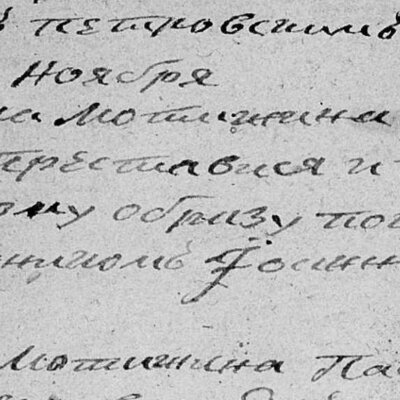 петровскимъ
ноября
на мотижина
преставися и
ому образу пог
никомъ Їоанн
мотижина Па